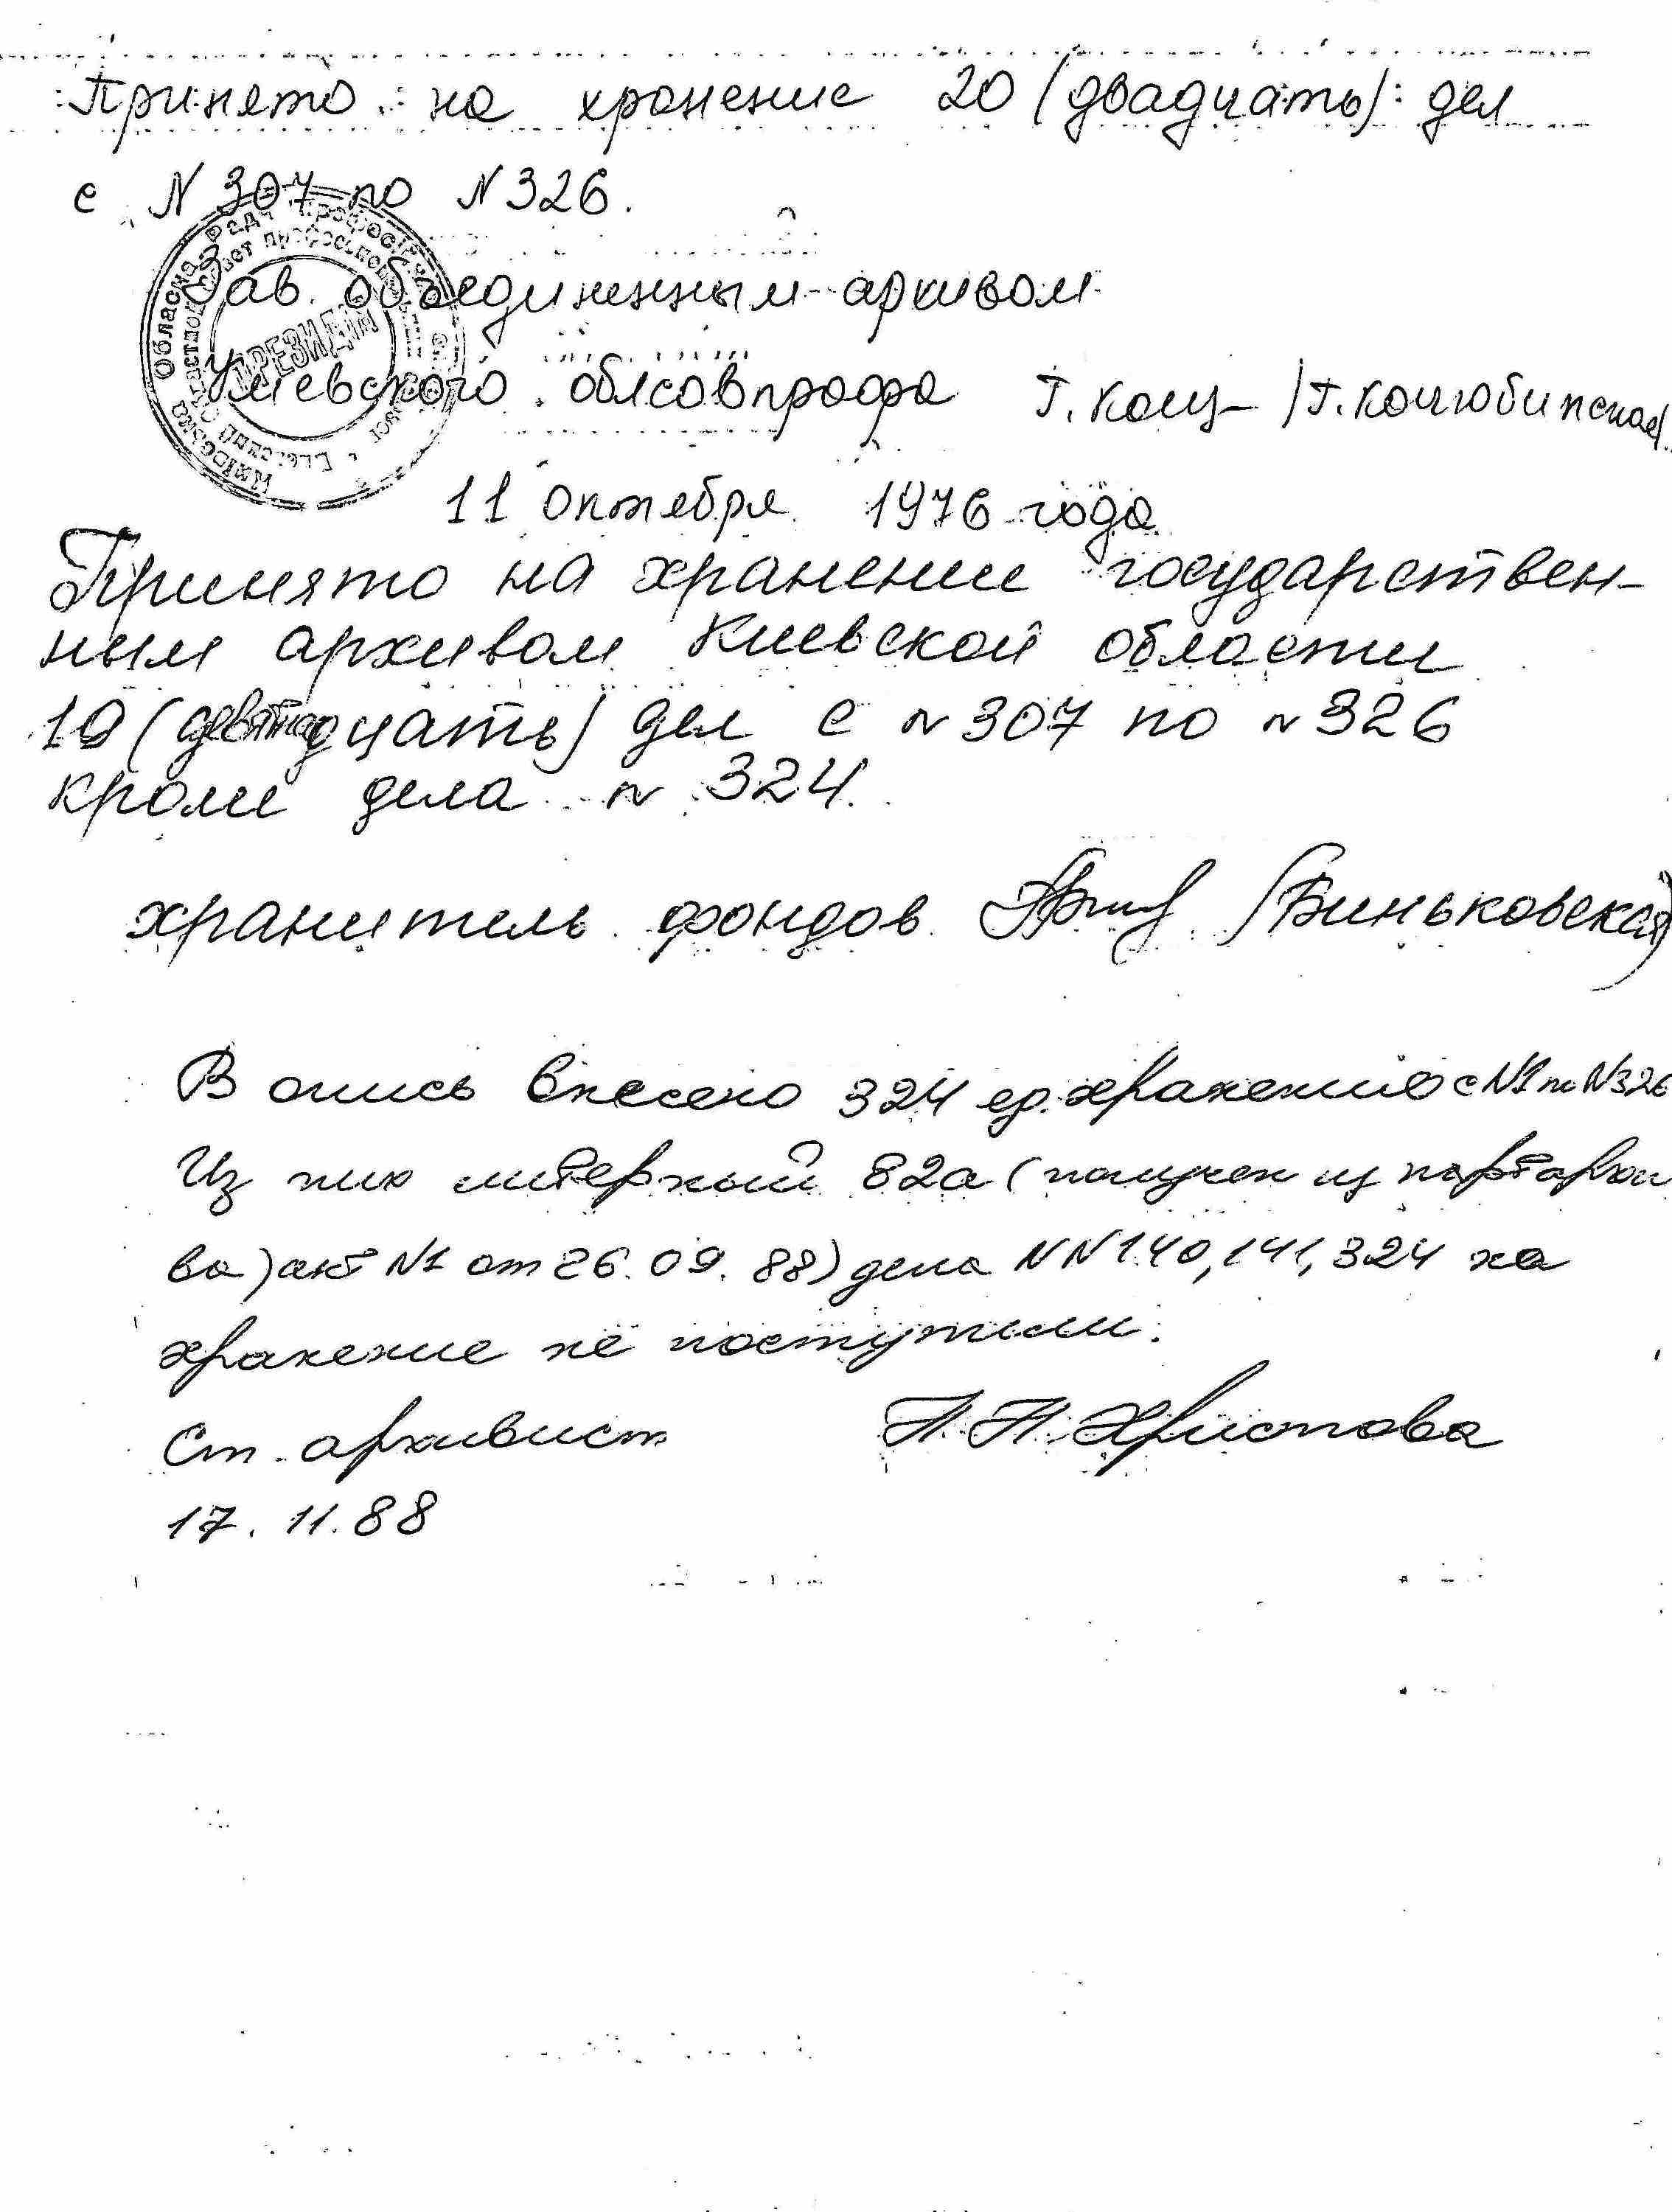 Принято на хранение 20 (двадцать) дел
с N 307 по N 326.
Зав. объединенным архивом
Киевского облсовпрофа Г. Коц /Г. Коцюбинская/
11 октября 1976 года
Принято на хранение государствен-
ным архивом Киевской области
19 (девятнадцать) дел с N 307 по N 326
кроме дела N 324.
хранитель фондов (Биньковская)
В опись внесено 324 ед. хранения с N1 по N326
Из них литерный 82а (получен из партархи
ва) акт N1 от 26.09.88) дела NN 140, 141, 324 на
хранение не поступили.
Ст. архивист Н. Н. Христова
17.11.88
Київська Обласна Рада Профспілок
ПРЕЗИДІЯ